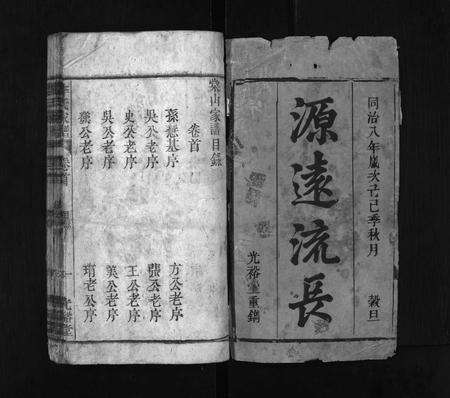 同治八年歲次己巳季秋月　穀旦
源遠流長
光裕堂重鐫
棠山家譜目錄
卷首
孫懋基序
方公老序
吳公老序
張公老序
史公老序
王公老序
吳公老序
吳公老序
孫公老序
卷首